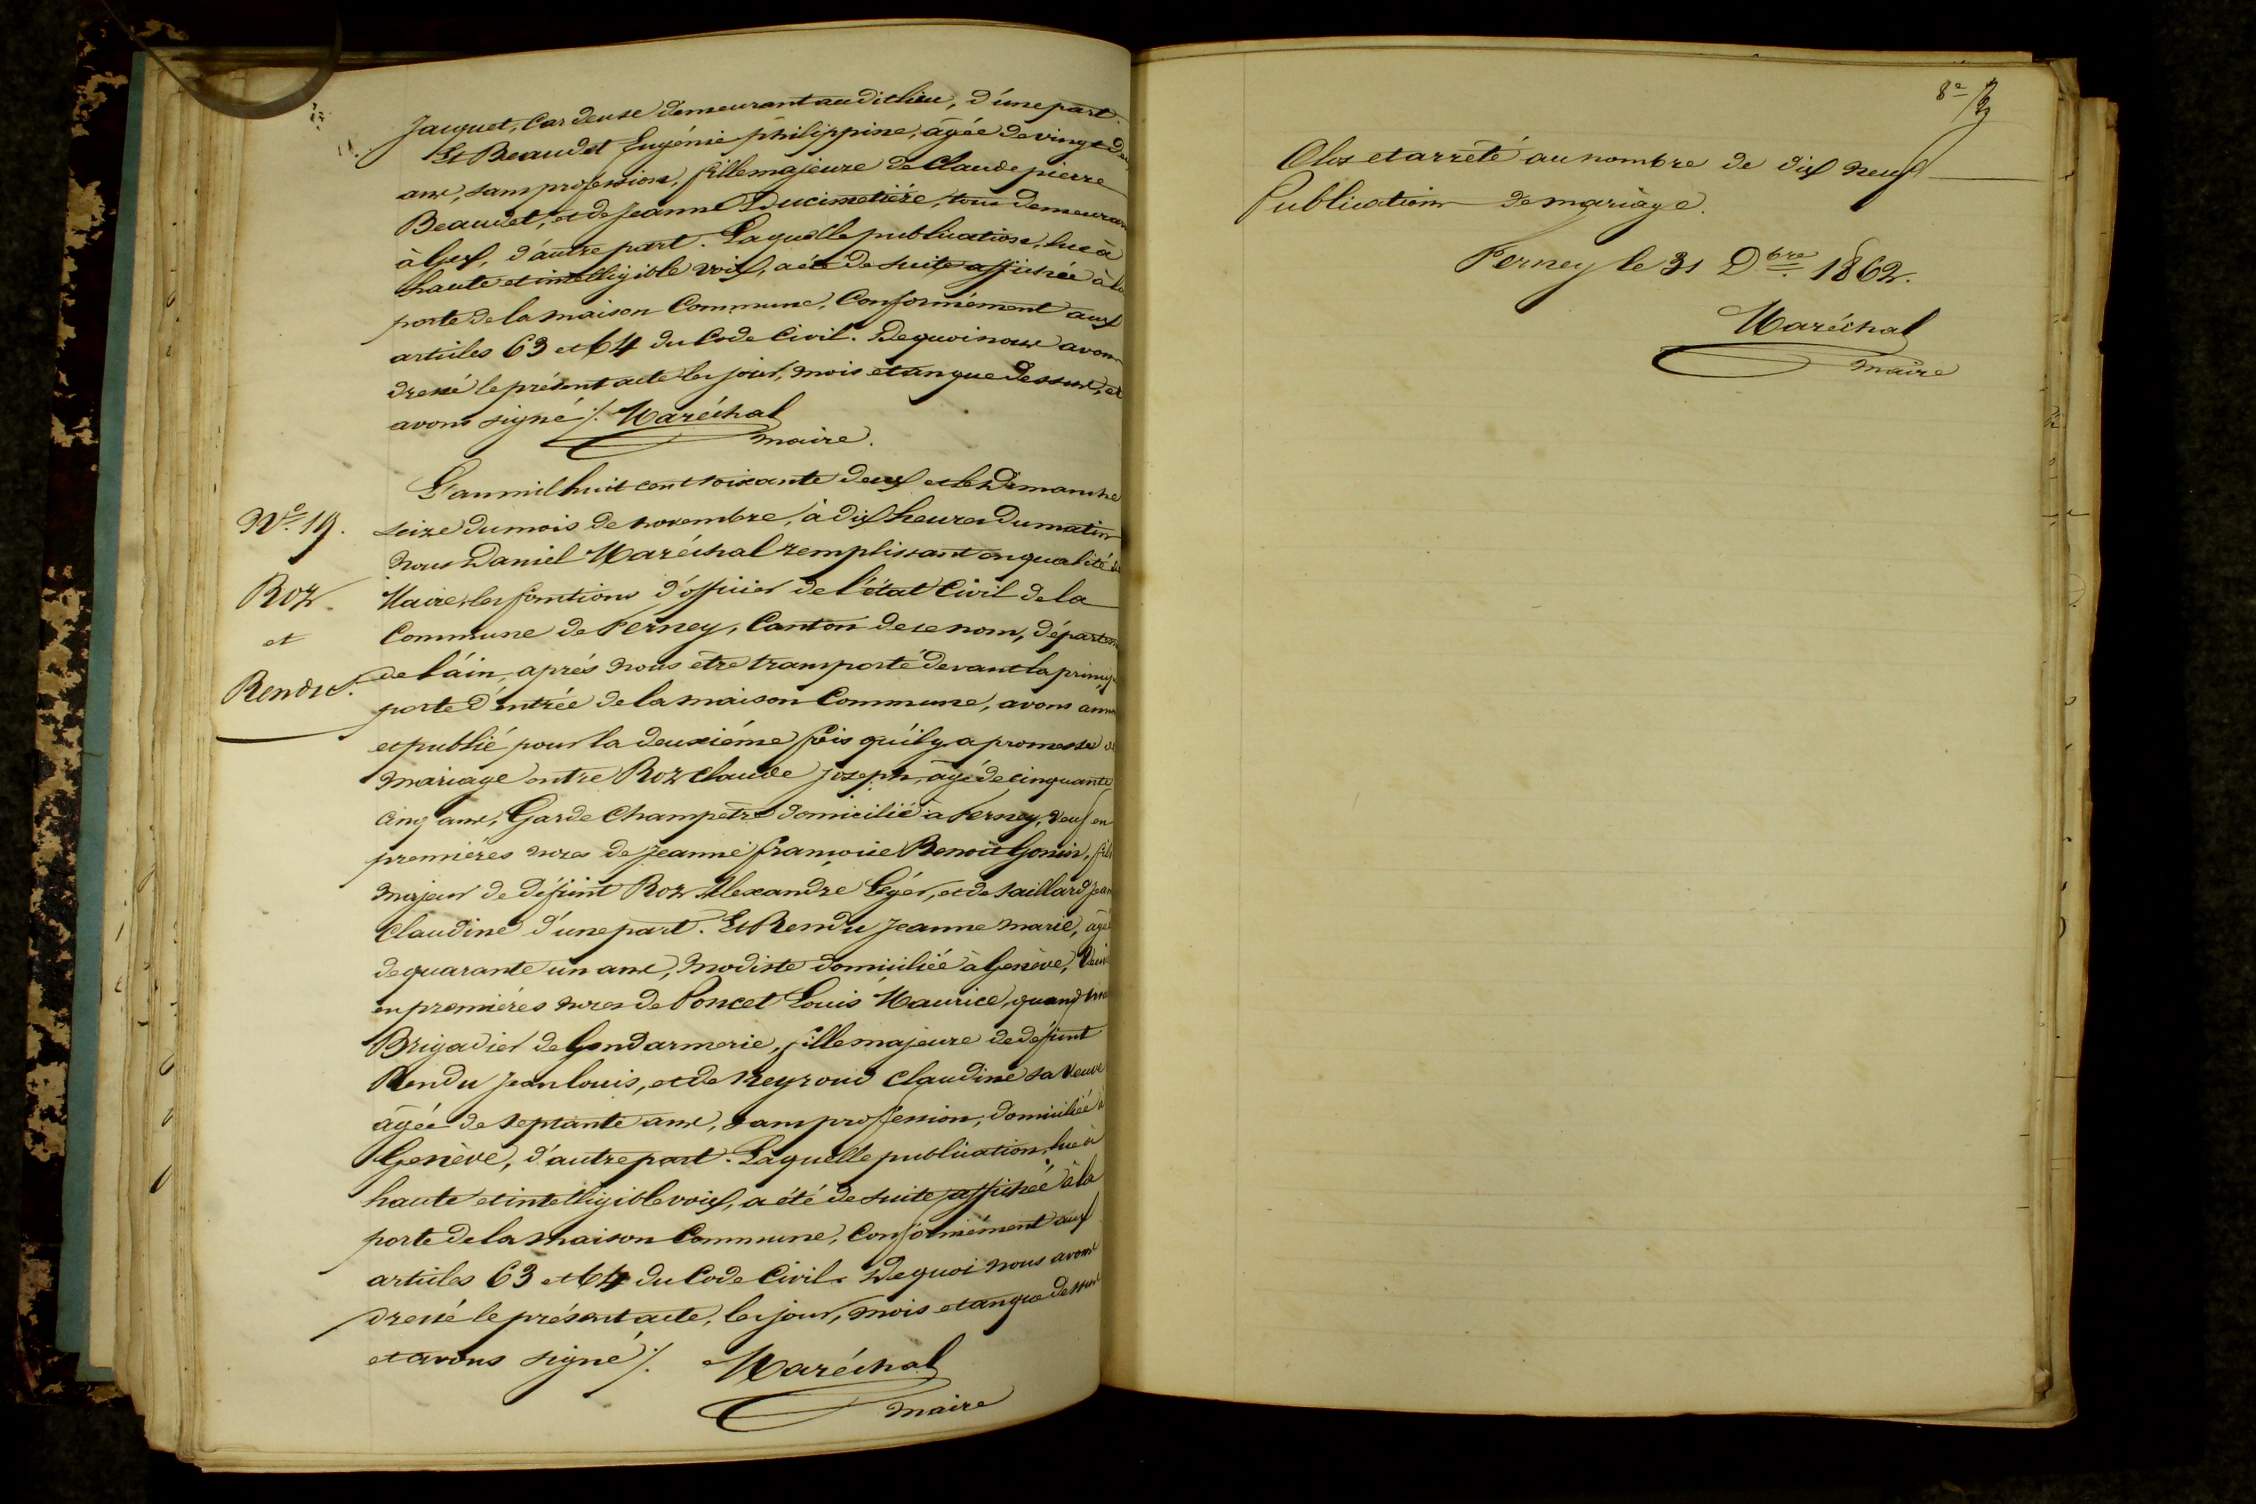 Jaquet, Cardeuse demeurant audit lieu, d'une part.
Et Beaudet Eugénie philippine, âgée de vingt
ans, sans profession, fille majeure de Claude pierre
Beaudet, et de Jeanne Ducimetière, tous demeuran
à Gex, d'autre part. Laquelle publication, lue à
haute et intelligible voix, a été de suite affichée à la
porte de la maison Commune, Conformément aux
articles 63 et 64 du Code Civil. De quoi nous avons
dressé le présent acte les jour, mois et an que dessus, et
avons signé ./. Maréchal
maire.
L'an mil huit cent soixante deux et le Dimanche
seize du mois de novembre, à dix heures du matin
Nous Daniel Maréchal remplissant en qualité de
Maire, les fonctions d'officier de l'état Civil de la
Commune de Ferney, Canton de ce nom, départem
de l'áin, aprés nous être transporté devant la princip
porte d'entrée de la maison Commune, avons ann
et publié pour la deuxiéme fois qu'il y a promesse de
mariage entre Roz Claude Joseph, âgé de cinquante
cinq ans, Garde Champètre domicilié à Ferney, veuf en
premières noces de Jeanne françoise Benoit Gonin, fils
majeur de défunt Roz Alexandre Légér, et de Saillard Jean
Claudine d'une part. Et Rendu Jeanne marie, âgé
de quarante un ans, modiste domiciliée à Genève, Veuve
en premiéres noces de Poncet Louis Maurice, quand vivait
Brigadier de Gendarmerie, fille majeure de défunt
Rendu Jean louis, et de Neyroud Claudine sa Veuve
âgée de septante ans, sans profession, domiciliée à
Genève, d'autre part. Laquelle publication, lue à
haute et intelligible voix, a été de suite affichée à la
porte de la maison Commune, Conformément aux
articles 63 et 64 du Code Civil. De quoi nous avons
dressé le présent acte, les jour, mois et an que dessus
et avons signé ./. Maréchal
maire
N.º 19.
Roz
et
Rendu.
8e
Clos et arrêté au nombre de dix neuf
Publications de mariage.
Ferney le 31 Dbre 1862.
Maréchal
maire